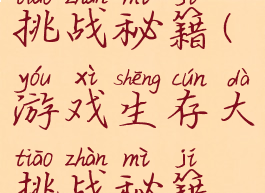 tiāo zhàn mì jí
挑战秘籍(
yóu xì shēng cún dà
游戏生存大
tiāo zhàn mì jí
挑战秘籍